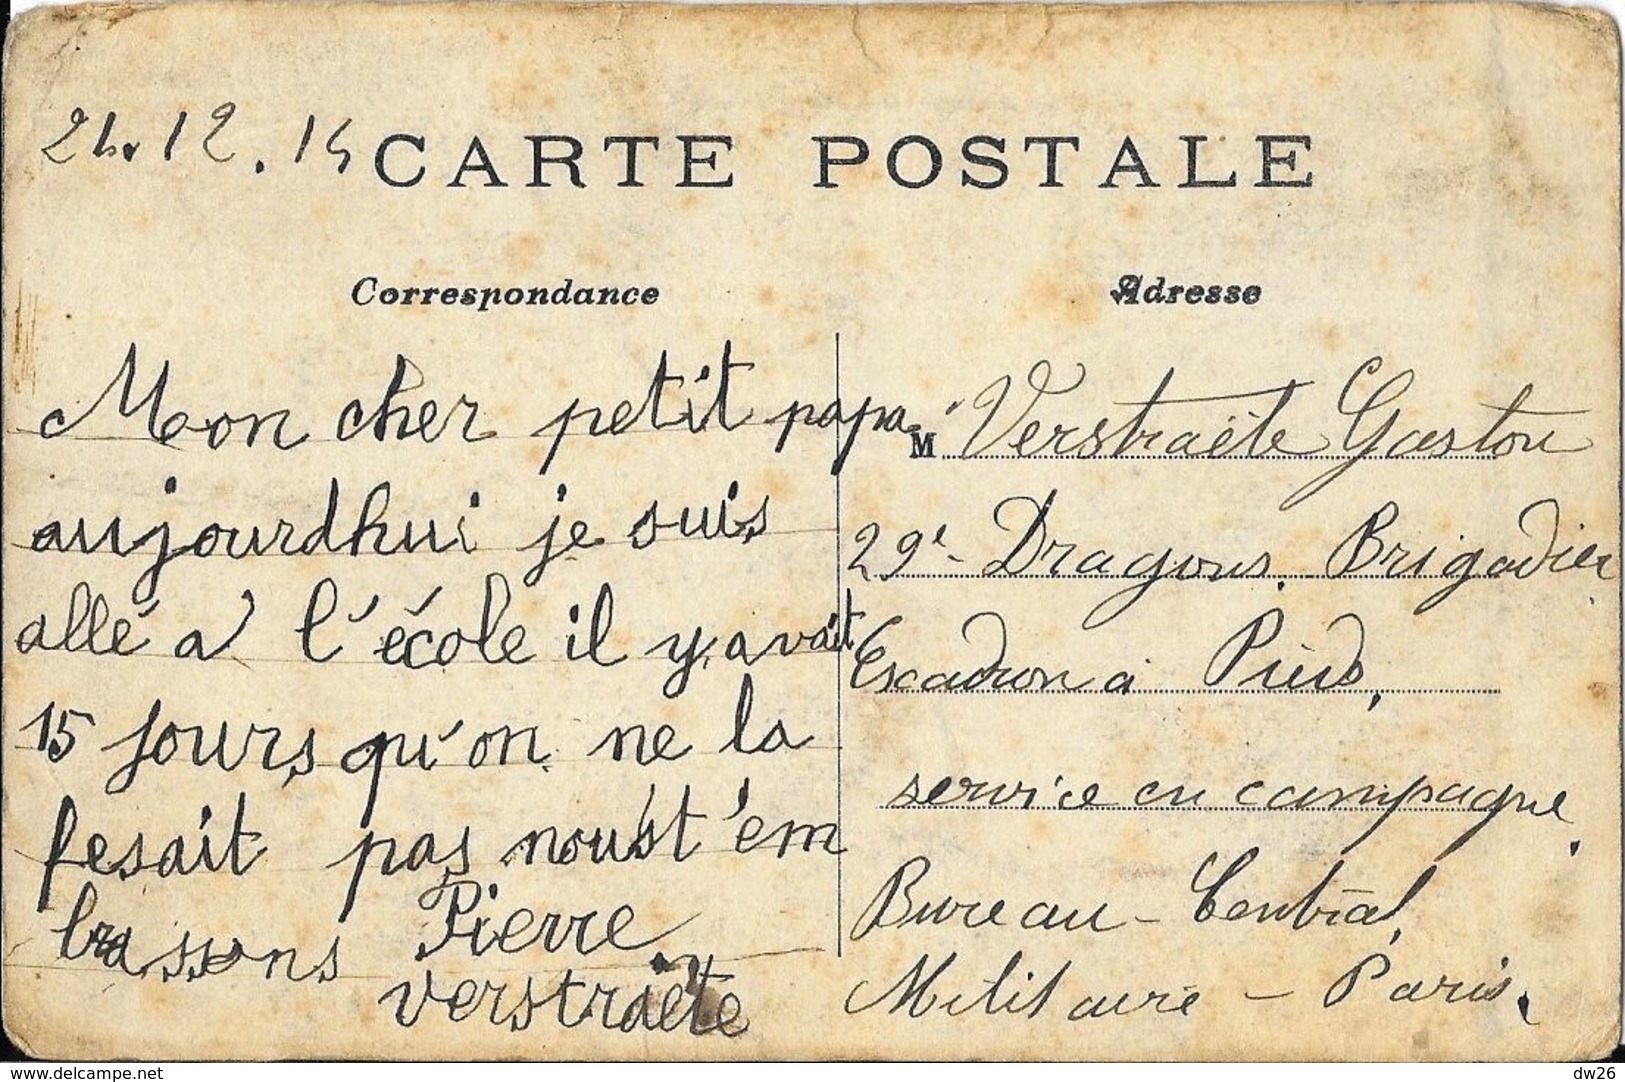 21.12.15 CARTE POSTALE
Correspondance
Mon cher petit papa
aujourdhui je suis
allé a l'école il y avait
15 jours qu'on ne la
fesait pas nous t'em
brassons Pierre
verstraete
Adresse
M Verstraëte Gaston
29e Dragons. Brigadier
Escadron à Pied,
service en campagne.
Bureau - Central,
Militaire - Paris.
www.delcampe.net
dw26